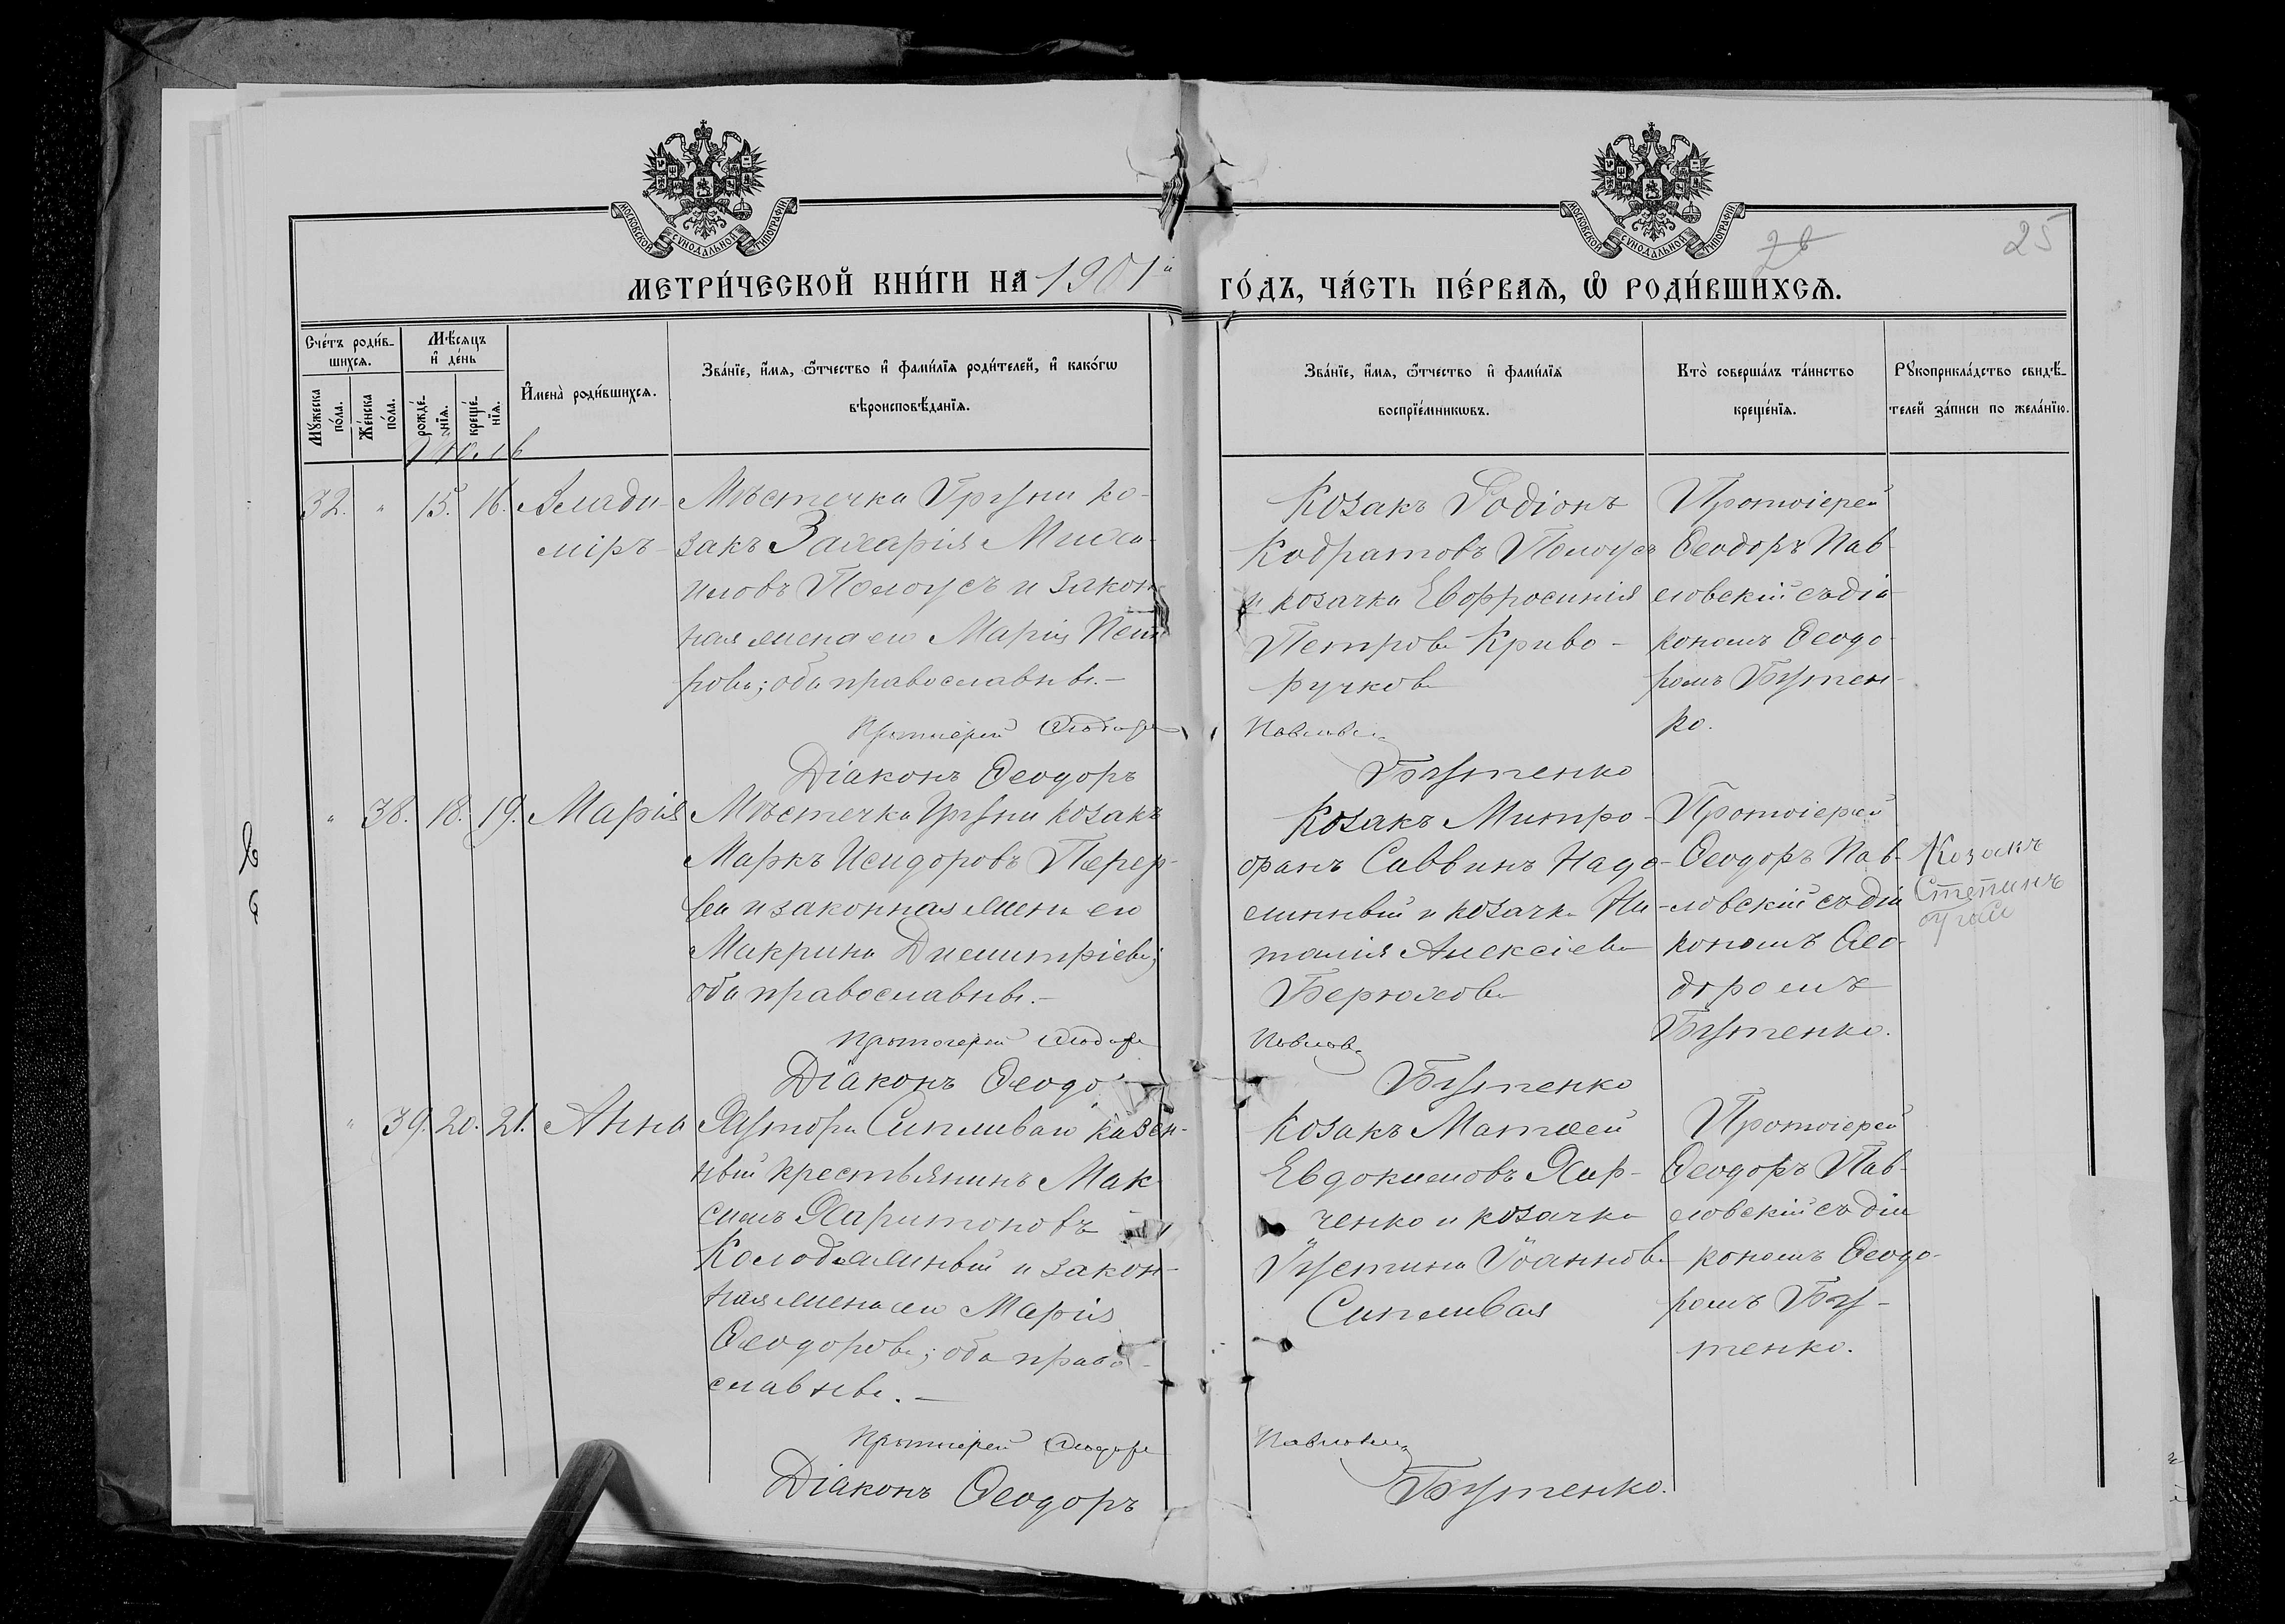 МОСКОВСКОЙ СѴНОДАЛЬНОЙ ТИПОГРАФІИ
МОСКОВСКОЙ СѴНОДАЛЬНОЙ ТИПОГРАФІИ
26
25
МЕТРИ́ЧЕСКОЙ КНИ́ГИ НА 1901й
ГО́ДЪ, ЧА́СТЬ ПЕ́РВАѦ, Ѡ҆ РОДИ́ВШИХСѦ.
Сче́тъ роди́в-
шихсѧ.
Мꙋ́жеска по́ла.
Же́нска по́ла.
Мѣ́сѧцъ
и҆ де́нь
рожде́-
нїѧ.
креще́-
нїѧ.
И҆мена̀ роди́вшихсѧ.
Зва́нїе, и҆́мѧ, ѻ҆́тчество и҆ фами́лїѧ роди́телей, и҆ како́гѡ
вѣроисповѣ́данїѧ.
Зва́нїе, и҆́мѧ, ѻ҆́тчество и҆ фами́лїѧ
воспрїе́мникѡвъ.
Кто̀ соверша́лъ та́инство
креще́нїѧ.
Рꙋкоприкла́дство свидѣ́-
телей за́писи по жела́нїю.
32. " 15. 16. Влади-
міръ
Мѣстечка Груни ко-
закъ Захарія Миха-
иловъ Полоусъ и закон-
ная жена его Марія Пет-
рова; оба православны.-
Протоіерей Ѳеодоръ
Діаконъ Ѳеодоръ
Козакъ Родіонъ
Кодратовъ Полоусъ
и козачка Евфросинія
Петрова Криво-
ручкова
Павловскій
Бутенко
Протоіерей
Ѳеодоръ Пав-
ловскій съ діа-
кономъ Ѳеодо-
ромъ Бутен-
ко.
" 38. 18. 19. Марія
Мѣстечка Груни козакъ
Маркъ Исидоровъ Перер-
ва и законная жена его
Макрина Димитріева;
оба православны.-
Протоіерей Ѳеодоръ
Діаконъ Ѳеодо
Козакъ Митро-
фанъ Саввинъ Надо-
линный и козачка На-
талія Алексіева
Берюхова
Павловскій
Бутенко
Протоіерей
Ѳеодоръ Пав-
ловскій съ діа
кономъ Ѳео-
доромъ
Бутенко.
Козакъ
Степанъ
" 39. 20. 21. Анна
Хутора Сипливаго казен-
ный крестьянинъ Мак-
симъ Харитоновъ
Колодяжный и закон-
ная жена его Марія
Ѳеодорова; оба право-
славные.-
Протоіерей Ѳеодоръ
Діаконъ Ѳеодоръ
Козакъ Матѳей
Евдокимовъ Хар-
ченко и козачка
Іустина Іоаннова
Сипливая
Павловскій
Бутенко.
Протоіерей
Ѳеодоръ Пав-
ловскій съ діа
кономъ Ѳеодо-
ромъ Бу-
тенко.